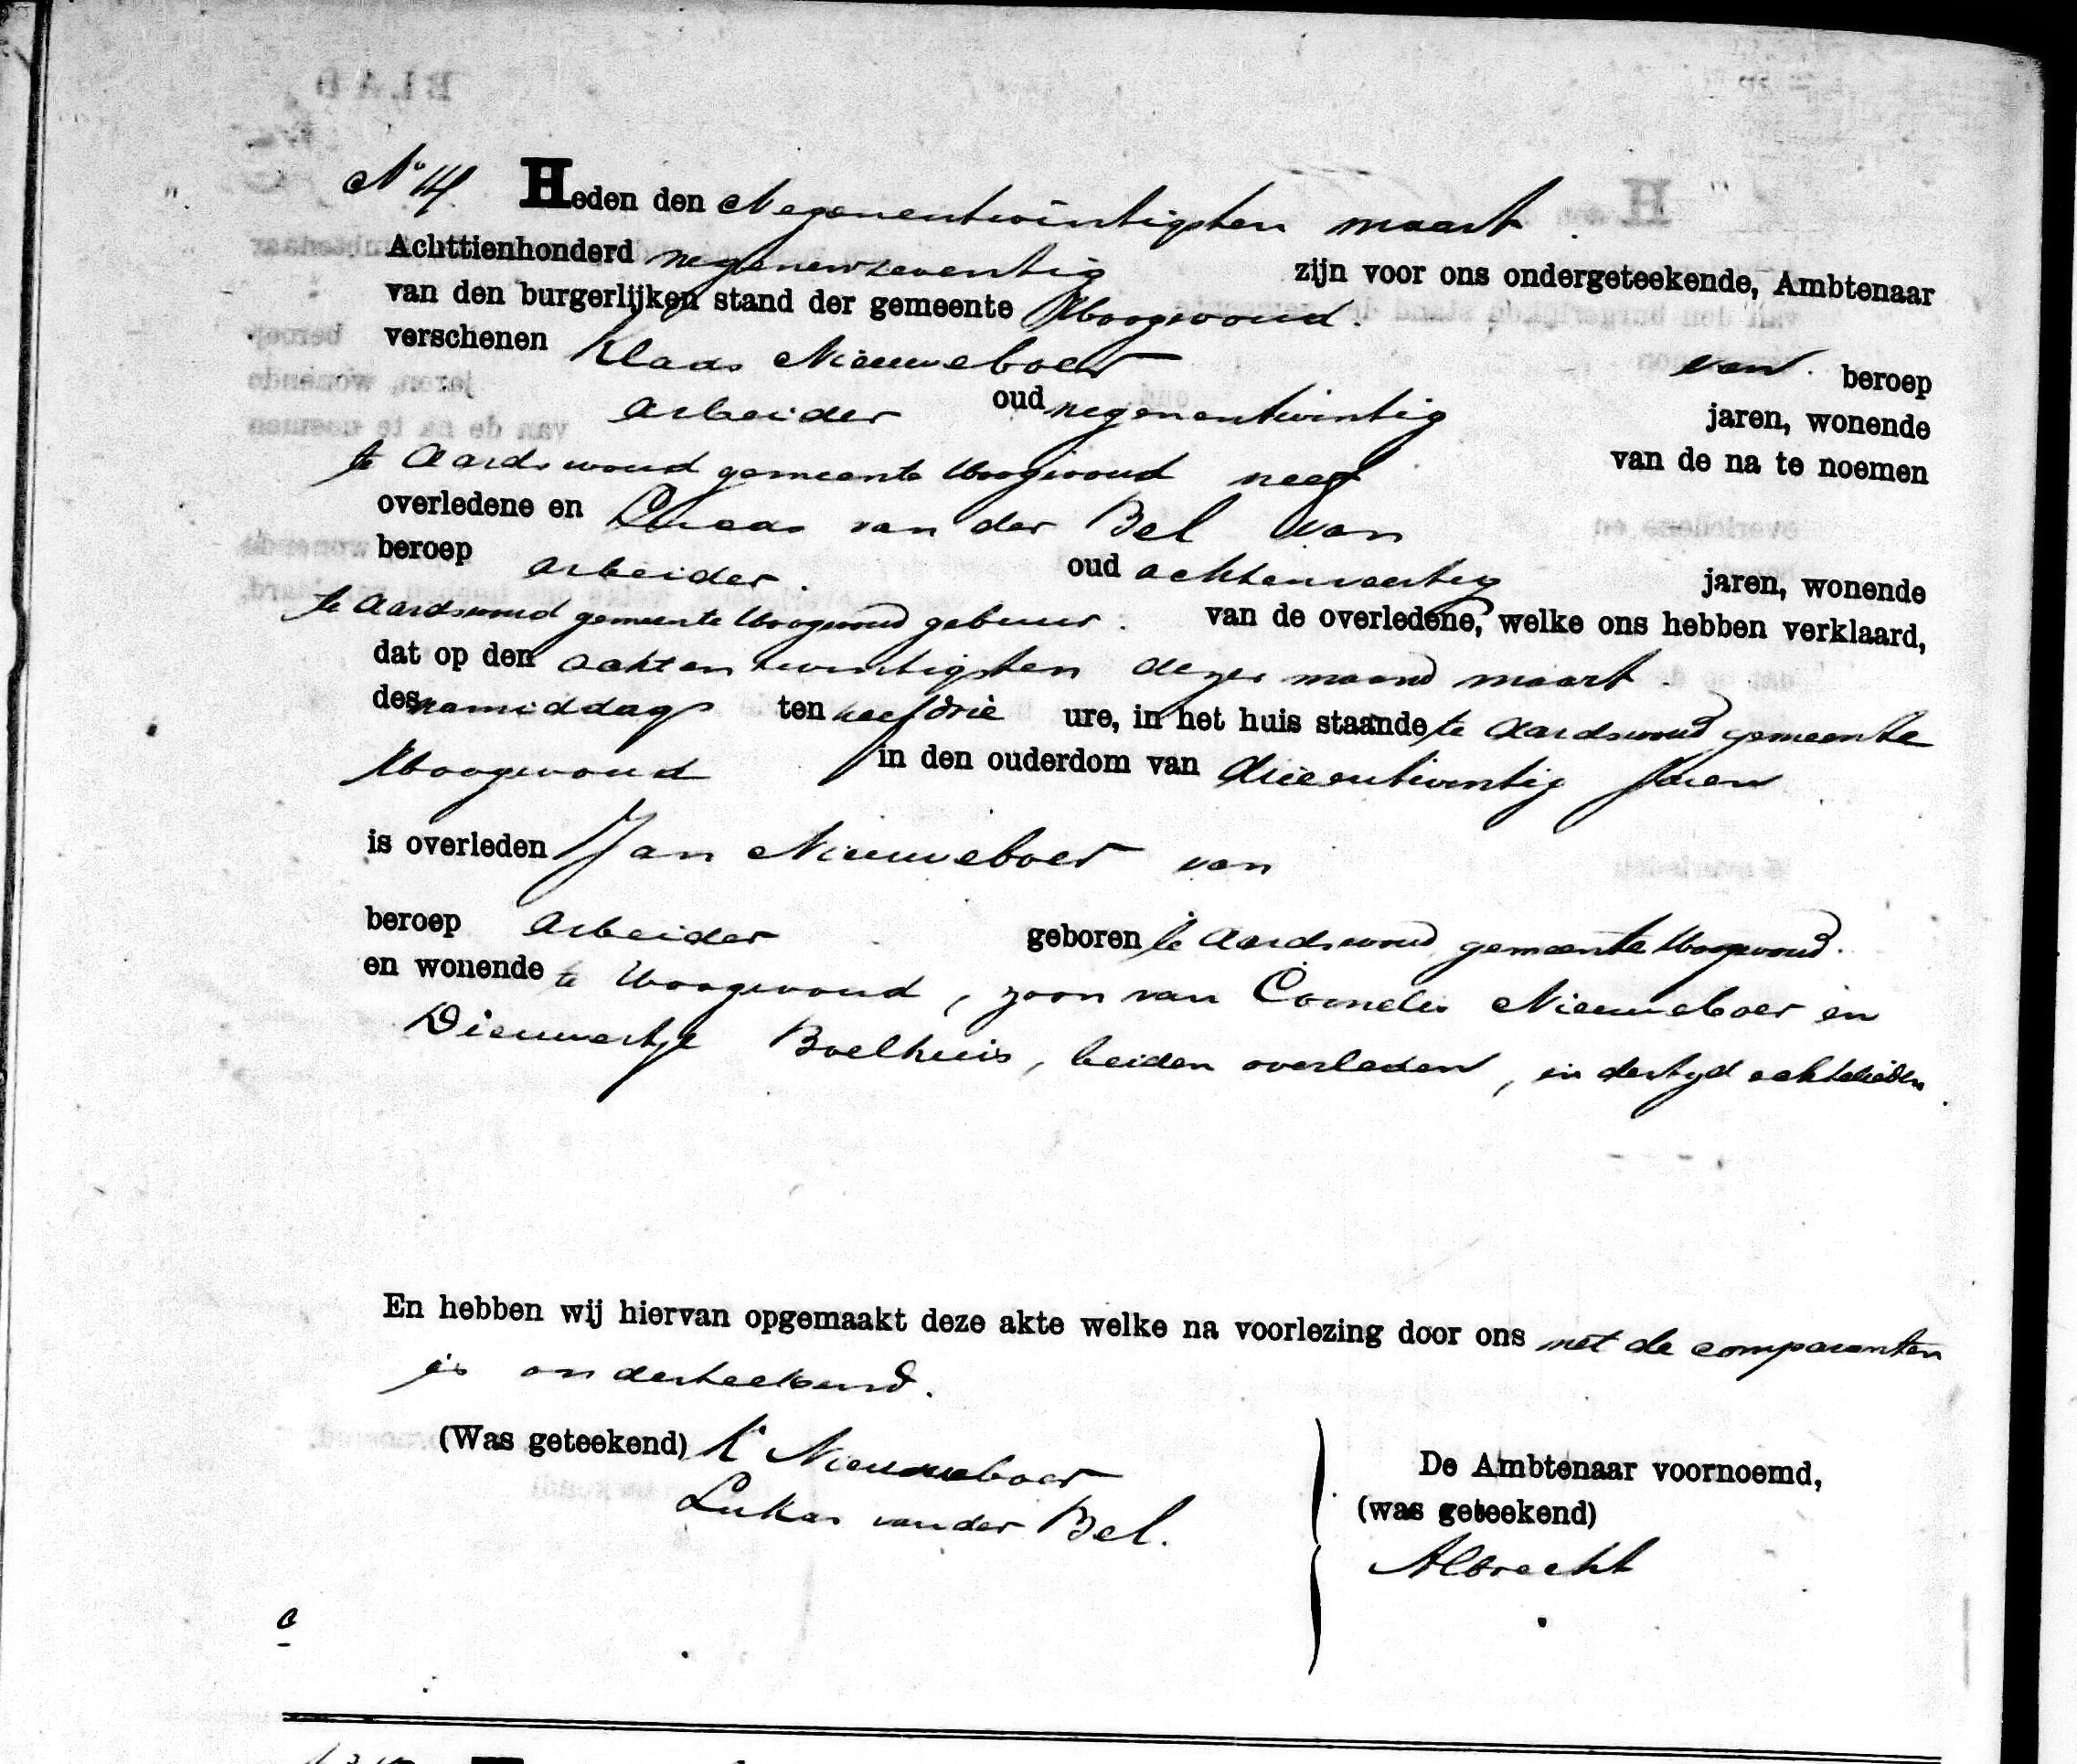 No 14. Heden den Negenentwintigsten maart
Achttienhonderd negenenzeventig zijn voor ons ondergeteekende, Ambtenaar
van den burgerlijken stand der gemeente Hoogwoud.
verschenen Klaas Nieuweboer van beroep
arbeider oud negenentwintig jaren, wonende
te Aardswoud gemeente Hoogwoud neef van de na te noemen
overledene en Lucas van der Bel van
beroep arbeider. oud achtenveertig jaren, wonende
te Aardswoud gemeente Hoogwoud gebuur. van de overledene, welke ons hebben verklaard,
dat op den achtentwintigsten dezer maand maart.
des namiddags ten half drie ure, in het huis staande te Aardswoud gemeente
Hoogwoud in den ouderdom van drieentwintig jaren
is overleden Jan Nieuweboer van
beroep arbeider geboren te Aardswoud gemeente Hoogwoud.
en wonende te Hoogwoud, zoon van Cornelis Nieuweboer en
Dieuwertje Boelhuis, beiden overleden, in dertyd echtelieden.
En hebben wij hiervan opgemaakt deze akte welke na voorlezing door ons met de comparanten
is onderteekend.
(Was geteekend) K Nieuweboer
Lukas van der Bel.
De Ambtenaar voornoemd,
(was geteekend)
Albrecht